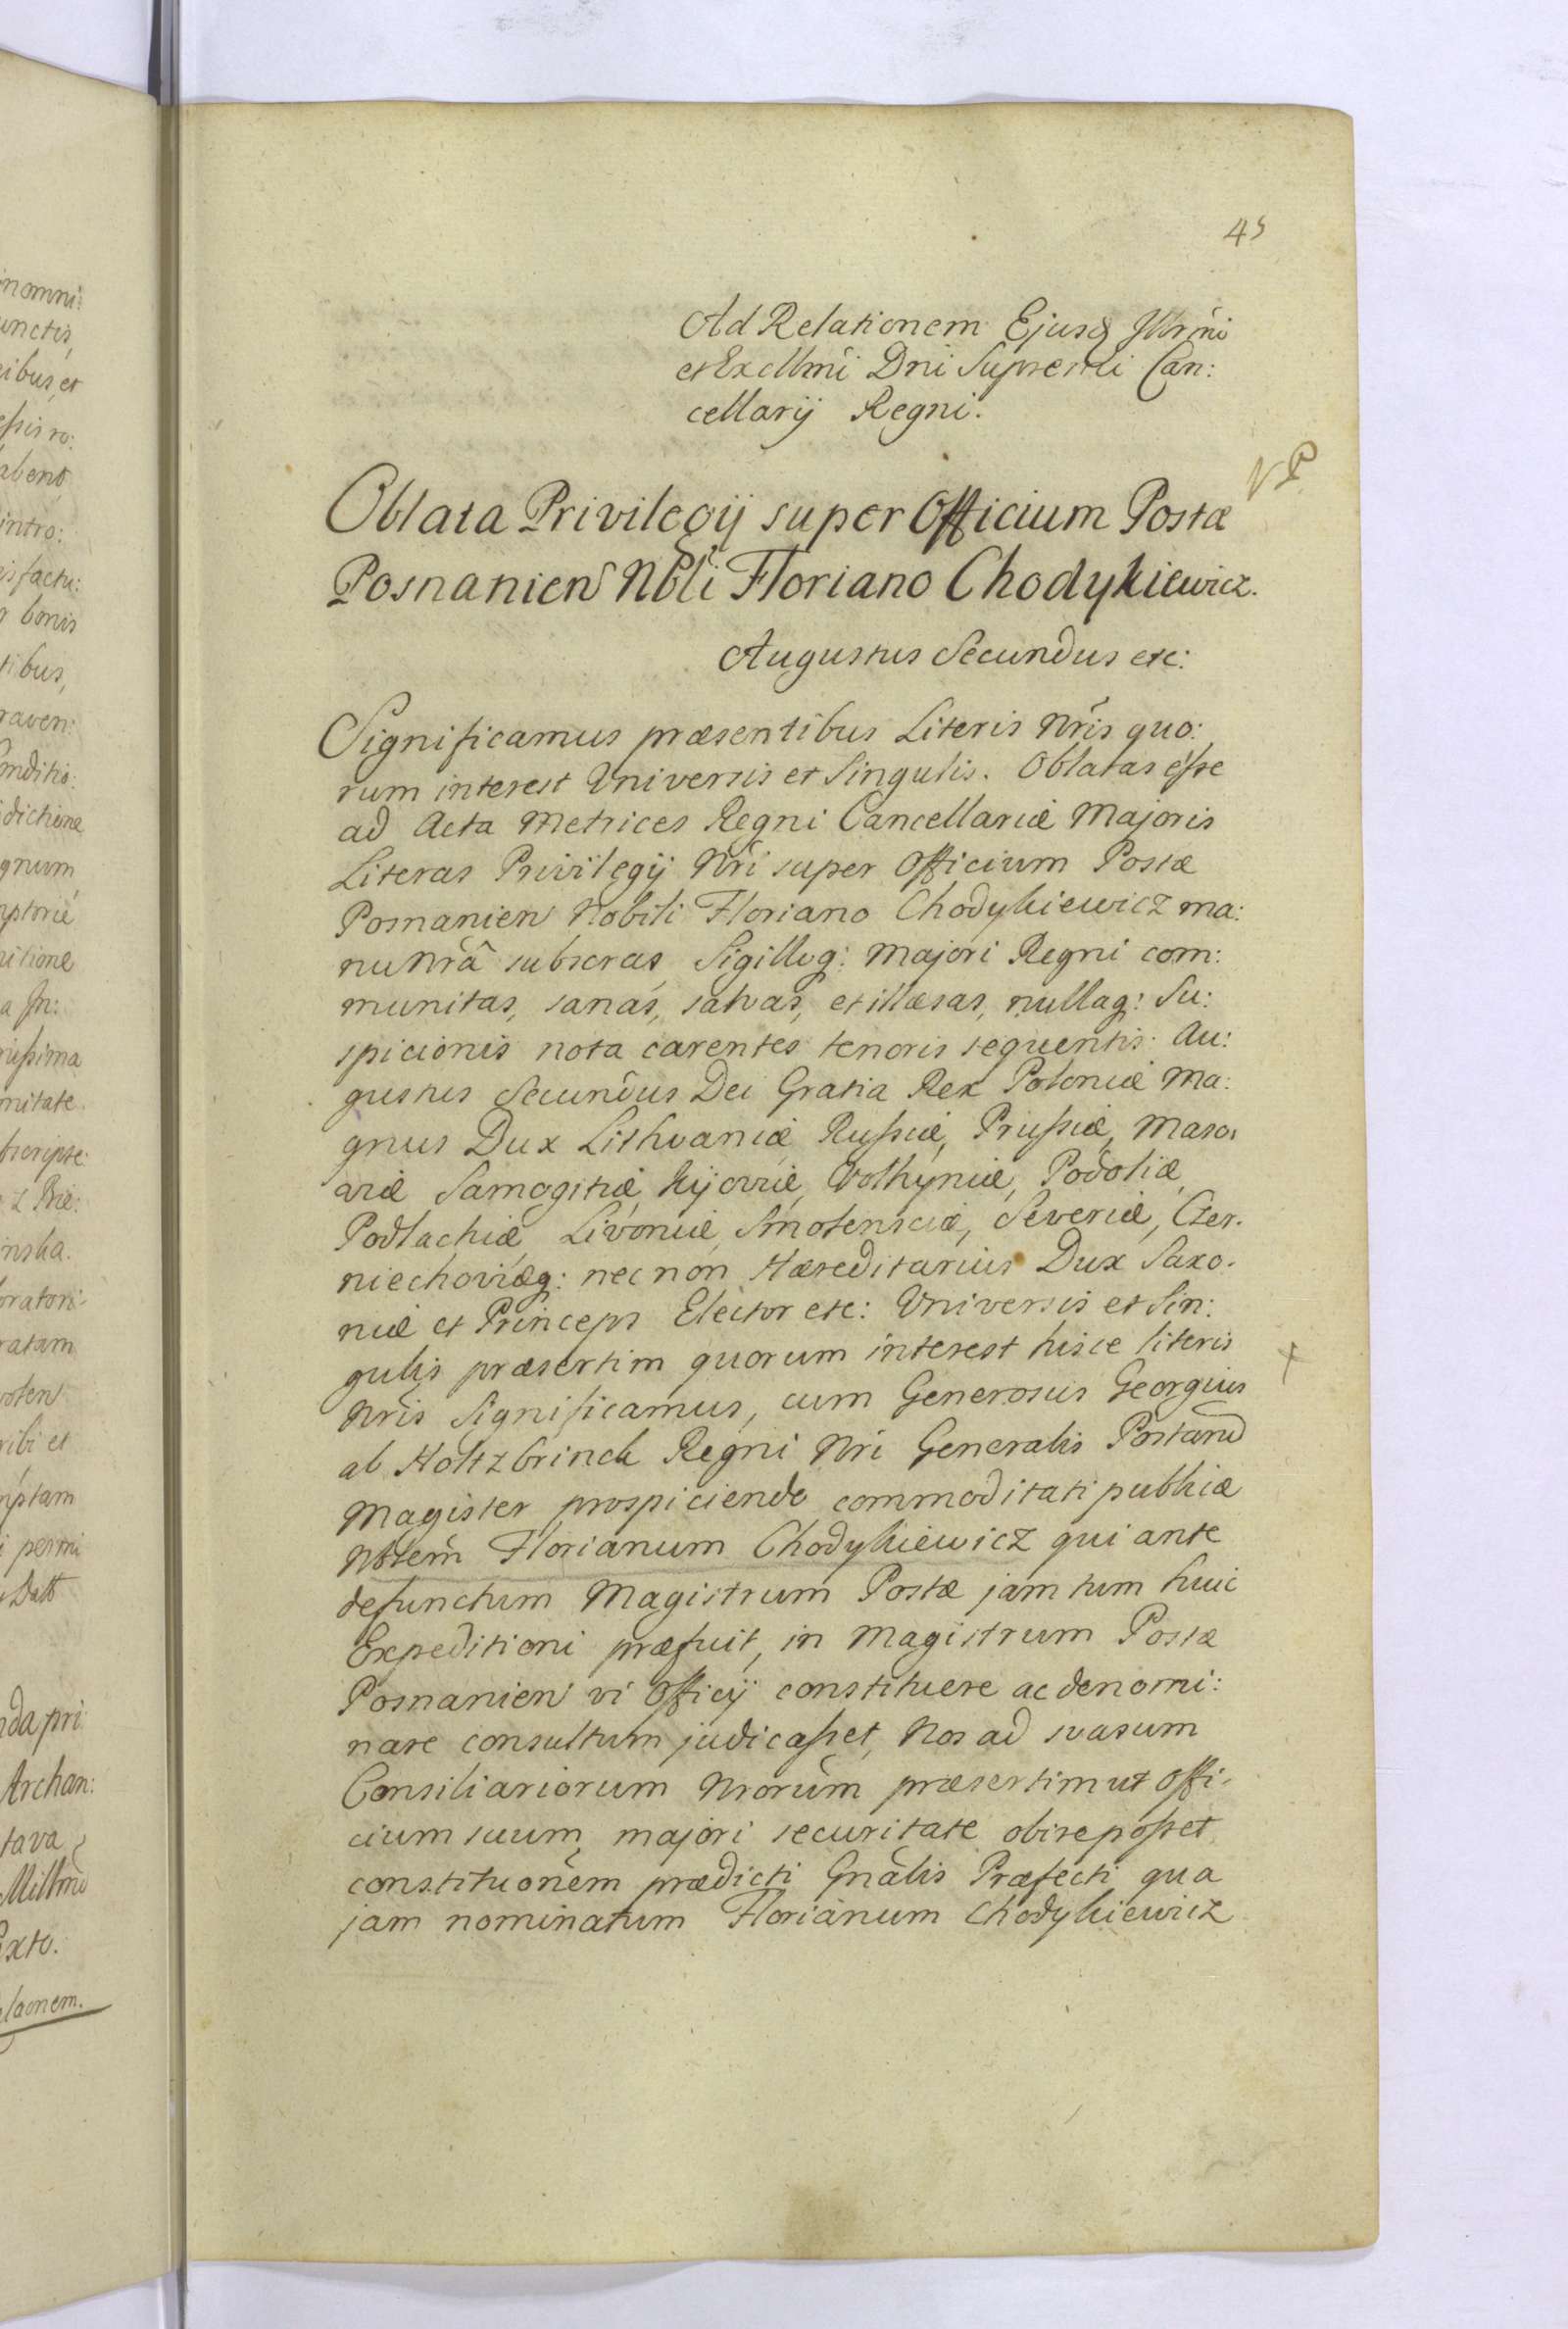 45
Ad Relationem Ejusd Illr̃mi
et Excellm̃i Dñi Supremi Can:
cellarij Regni.
VP
Oblata Privilegij super Officium Postæ
Posnanien Nbl̃i Floriano Chodykiewicz.
Augustus Secundus etc:
Significamus præsentibus Literis Nr̃is quo:
rum interest Universis et Singulis. Oblatas eſse
ad Acta Metrices Regni Cancellariæ Majoris
Literas Privilegij Nr̃i super Officium Postæ
Posnanien Nobili Floriano Chodykiewicz ma:
nu Nr̃â subscras, Sigilloq: Majori Regni com:
munitas, sanas, salvas, et illæsas, nullaq: Su:
spicionis nota carentes tenoris sequentis: Au:
gustus Secundus Dei Gratia Rex Poloniæ Ma:
gnus Dux Lithvaniæ, Ruſsiæ, Pruſsiæ, Maso:
viæ Samogitiæ, Kijoviæ, Volhyniæ, Podoliæ,
Podlachiæ, Livoniæ, Smolensciæ, Severiæ, Czer.
niechoviæq: nec non Hæreditarius Dux Saxo.
niæ et Princeps Elector etc: Universis et Sin:
gulis præsertim quorum interest hisce literis
Nr̃is Significamus, cum Generosus Georgius
ab Holtzbrinck Regni Nr̃i Generalis Postarũ
Magister prospiciendo commoditati publicæ
Nblem̃ Florianum Chodykiewicz qui ante
defunctum Magistrum Postæ jam tum huic
Expeditioni præfuit, in Magistrum Postæ
Posnanien vi Officij constituere ac denomi:
nare consultum judicaſset, Nos ad svasum
Consiliariorum Nrorũm præsertim ut Offi:
cium suum majori securitate obire poſset
constituonẽm prædicti Gnãlis Præfecti qua
jam nominatum Florianum Chodykiewicz